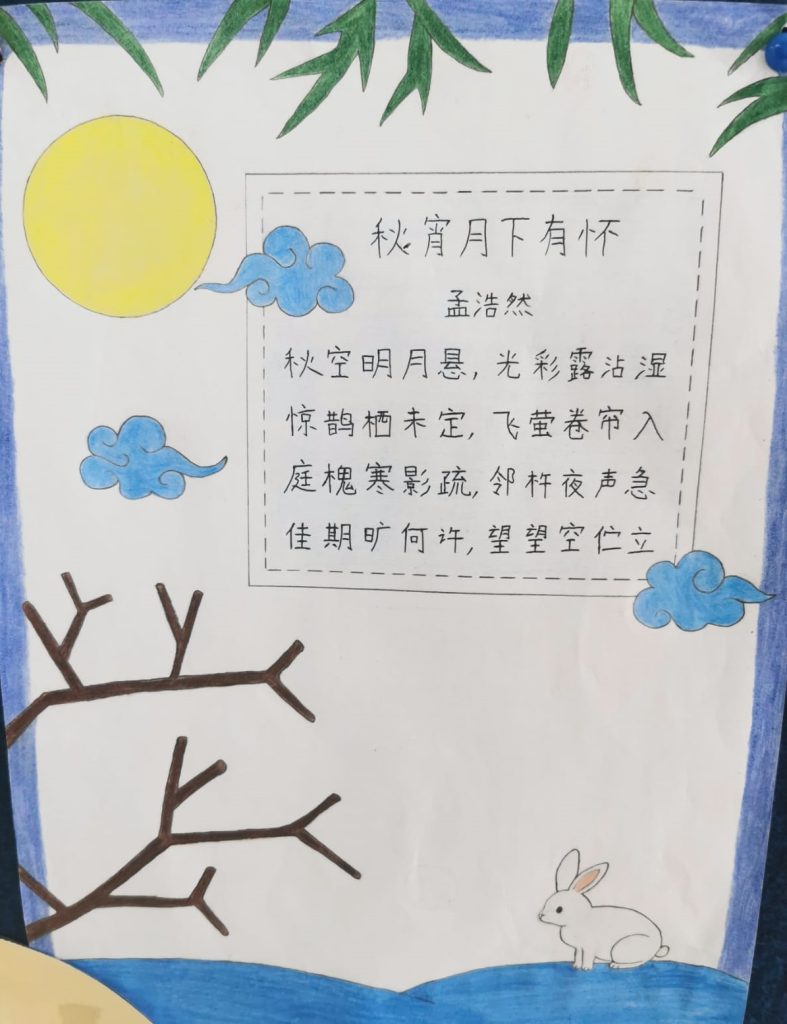 秋宵月下有怀
孟浩然
秋空明月悬,光彩露沾湿
惊鹊栖未定,飞萤卷帘入
庭槐寒影疏,邻杵夜声急
佳期旷何许,望望空伫立